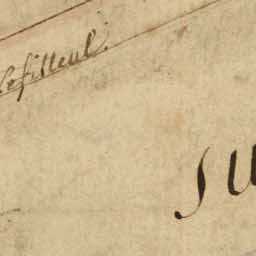 lefilleul.
SU